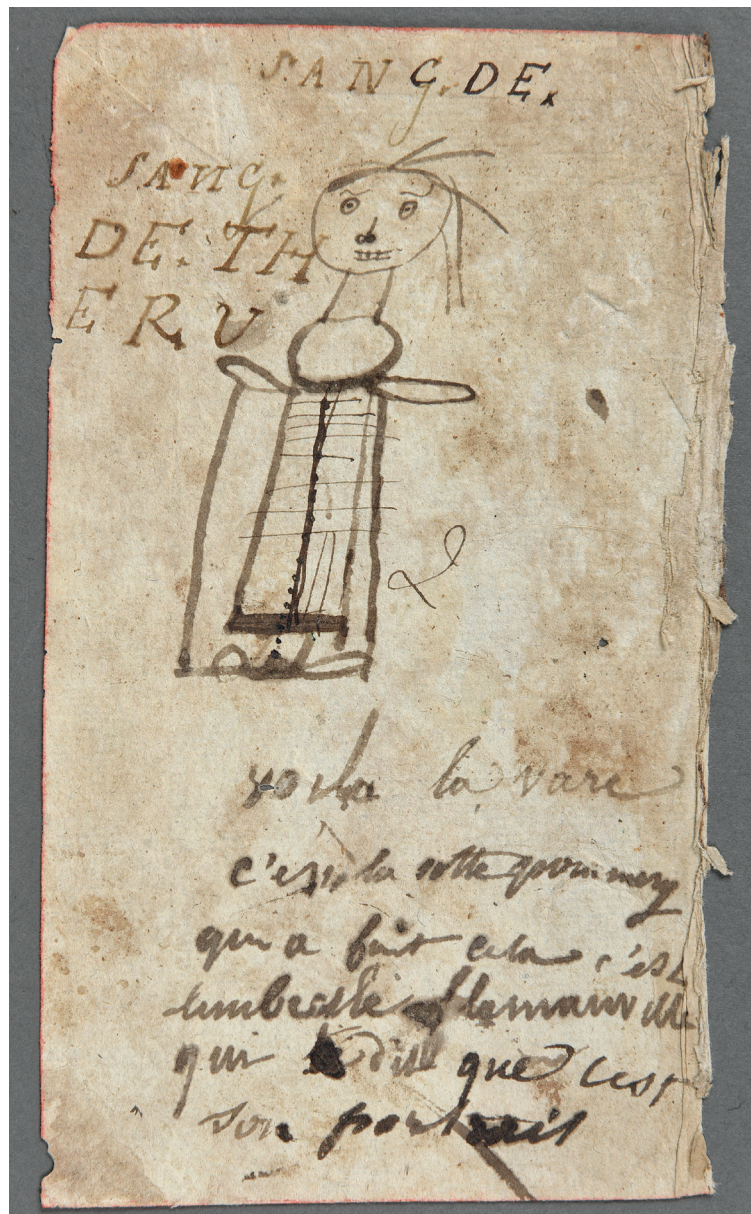 SANG. DE.
SANG.
DE. TH
ERU
voila la vare
c'est la sotte pommery
qui a fait cela c'est
qui dit que c'est
son portrait